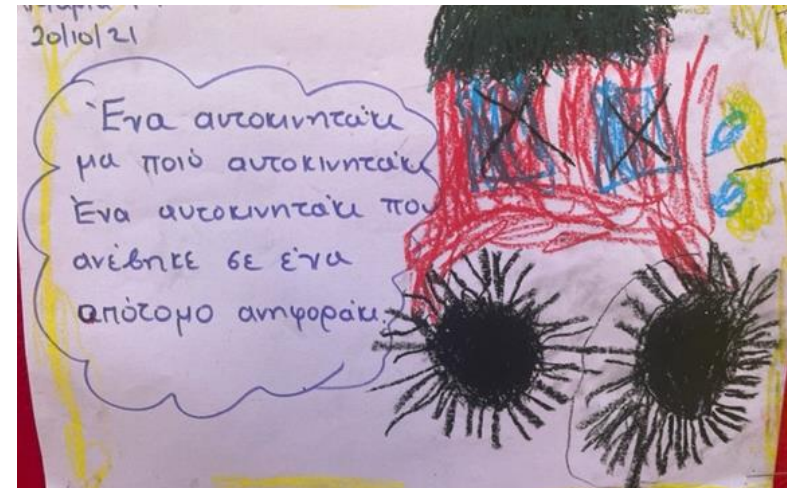 20/10/21
Ένα αυτοκινητάκι
μα ποιό αυτοκινητάκι
Ένα αυτοκινητάκι που
ανέβηκε σε ένα
απότομο ανηφοράκι.